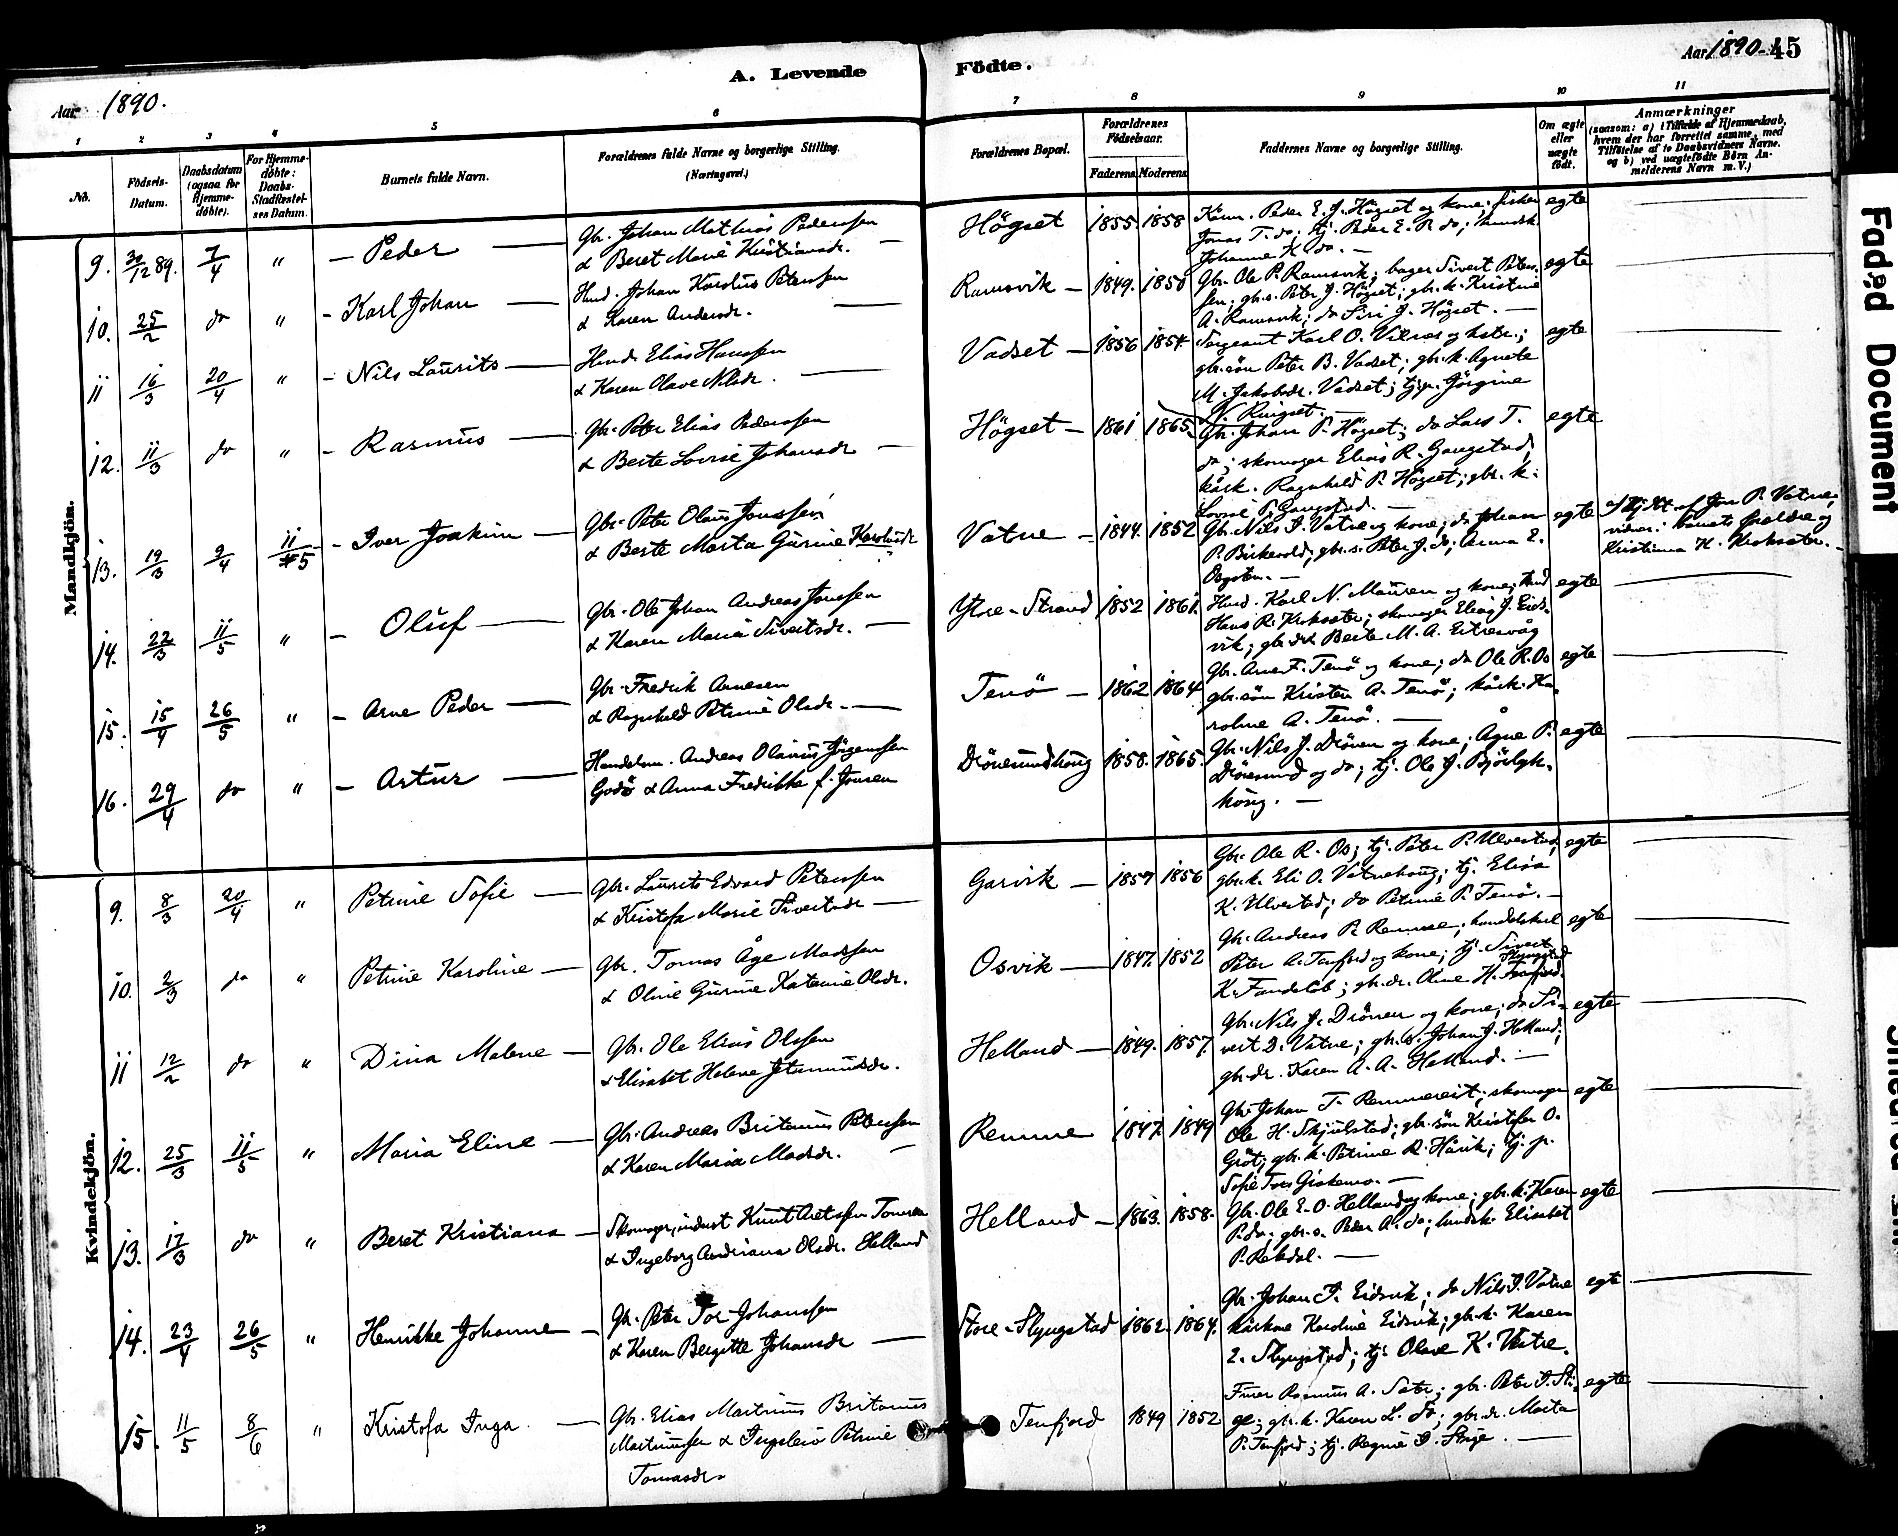 A. Levende
Födte.
Aar 1890.
Aar 1890. 45
1 2 3 4 5 6 7 8 9 10 11
No.
Födsels-Datum.
Daabsdatum (ogsaa for Hjemme-döbte).
For Hjemme-döbte: Daabs-Stadfæstel-ses Datum.
Barnets fulde Navn.
Forældrenes fulde Navne og borgerlige Stilling.
(Næringsvei.)
Forældrenes Bopæl.
Forældrenes Födselsaar.
Faderens Moderens
Faddernes Navne og borgerlige Stilling.
Om ægte eller uægte födt.
Anmærkninger
(saasom: a) i Tilfælde af Hjemmedaab,
hvem der har forrettet samme, med
Tilföielse af to Daabsvidners Navne.
og b) ved uægtefödte Börn An-
melderens Navn m. V.)
Mandkjön.
9. 30/12 89. 7/4 " - Peder
Gbr. Johan Mathias Pedersen
& Beret Marie Kristiansdr.
Högset 1855. 1858
Kaarm. Peder E. J. Högset og kone; fisker
Jonas T. do; tj. Peder E. P. do;
Johanne K. do. -
egte
10. 25/2 do " - Karl Johan
Husd. Johan Karolus Peterssen
& Karen Andersdr.
Ramsvik - 1849. 1850
Gbr. Ole P. Ramsvik; bager Sivert Peters-
sen; gbr.s. Peter J. Högset; gbr.k. Kristine
A. Ramsvik; do Siri J. Högset. -
egte
11 16/3 20/4 " - Nils Laurits
Husd. Elias Hanssen
& Karen Olave Nilsdr.
Vadset - 1856 1854.
Sergeant Karl O. Vilnes og hstr.;
gbr.sön Peter B. Vadset; gbr.k. Agnete
M. Jakobsdr. Vadset; tj.p. Jörgine
N. Ringset.
egte
12. 11/3 do " - Rasmus
Gbr. Peter Elias Pedersen
& Berte Lovise Johansdr
Högset - 1861 1865.
Gbr. Johan P. Högset; do Lars T.
do; skomager Elias R. Gangstad,
kårk. Ragnhild P. Högset; gbr. k.
Lovise P. Gangstad. -
egte
13. 19/3 9/4 11/5 - Iver Joakim
Gbr. Peter Olaus Jonssen
& Berte Marta Gurine Karolusdr
Vatne - 1844. 1852
Gbr. Nils I. Vatne og kone; do Johan
P. Birkevold; gbr.s. Peter J. do; Anna E.
egte
Hj.dbt af Jon P. Vatne,
vidner: barnets forældre og
Kristianna K. Kroksæter.
14. 22/3 11/5 " - Oluf
Gbr. Ole Johan Andreas Jonssen
& Karen Marie Sivertsdr.
Ytre-Strand 1852 1861.
Husd. Karl N. Mauren og kone; husd
Hans R. Kroksæter; skomager Elias J. Eids-
vik; gbr.dr Berte M. A. Eitresvåg
egte
15. 15/4 26/5 " - Arne Peder
Gbr. Fredrik Arnesen
& Ragnhild Petrine Olsdr.
Tenö - 1862 1864
Gbr. Arne F. Tenö og kone; do Ole R. Os
gbr.sön Kristen A. Tenö; kårk. Ka-
roline A. Tenö. -
egte
16. 29/4 do " - Artur
Handelsm. Andreas Olavius Jörgenssen
Godö & Anna Fredrikke f. Jonsen
Drönesundhoug 1858. 1865.
Gbr. Nils J. Drönen og kone; Åge P.
Drönesund og do; tj. Ole J. Björlyk-
houg. -
egte
Kvindekjön.
9. 8/3 20/4 " Petrine Sofie
Gbr. Laurits Edvard Peterssen
& Kristofa Marie Sivertsdr
Garvik - 1857 1856
Gbr. Ole R. Os; tj. Peter P. Ulvestad;
gbr.k. Eli O. Vatnehoug; tj. Elisa
K. Ulvestad; do Petrine P. Tenö. -
egte
10. 2/3 do " Petrine Karoline
Gbr. Tomas Åge Madssen
& Oline Gurine Katrine Olsdr.
Osvik - 1847. 1852
Gbr. Andreas P. Remme; handelskarl
Peter A. Tenfjord og kone; tj. Sivert
K. Fandelöb; gbr.dr. Oline H. Tenfjord.
egte
11 12/2 do " Dina Malene
Gbr. Ole Elias Olssen
& Elisabet Helene
Helland - 1849. 1857.
Gbr. Nils J. Drönen og kone; do Si-
vert D. Vatne; gbr.s. Johan J. Helland;
gbr.dr. Karen A. A. Helland. -
egte
12. 25/3 11/5 " Maria Eline
Gbr. Andreas Britanus Peterssen
& Karen Maria Madsdr.
Remme 1847. 1849
Gbr. Johan T. Remmereit; skomager
Ole H. Skjelstad; gbr.sön Kristofer O.
Gröt; gbr.k. Petrine R. Hårik; tj.p.
Sofie Tors Giskemo. -
egte
13. 17/3 do " Beret Kristiana
Skomager, inderst Knut Aetssen Tomren
& Ingeborg Andriana Olsdr. Helland
Helland - 1863. 1858.
Gbr. Ole E. O. Helland og kone; gbr.k. Karen
P. do; gbr.s. Peder A. do; husdk. Elisabet
P. Rekdal. -
egte
14. 23/4 26/5 " Henrikke Johanne
Gbr. Peter Tor Johanssen
& Karen Bergitte Johansdr
Store-Slyngstad 1862. 1864.
Gbr. Johan I. Eidsvik; do Nils I. Vatne
kårkone Karoline Eidsvik; gbr.k. Karen
E. Slyngstad; tj. Olave K. Vestre.
egte
15. 11/5 8/6 " Kristofa Inga
Gbr. Elias Martinus Britanus
Martinussen & Ingeleiv Petrine
Tomasdr
Tenfjord 1849 1852
Furer Rasmus A. Sæter; gbr. Peter I. Sti-
ge; gbr.k. Karen L. do; gbr.dr. Marta
P. Tenfjord; tj. Regine I. Stige. -
egte
Faded Document